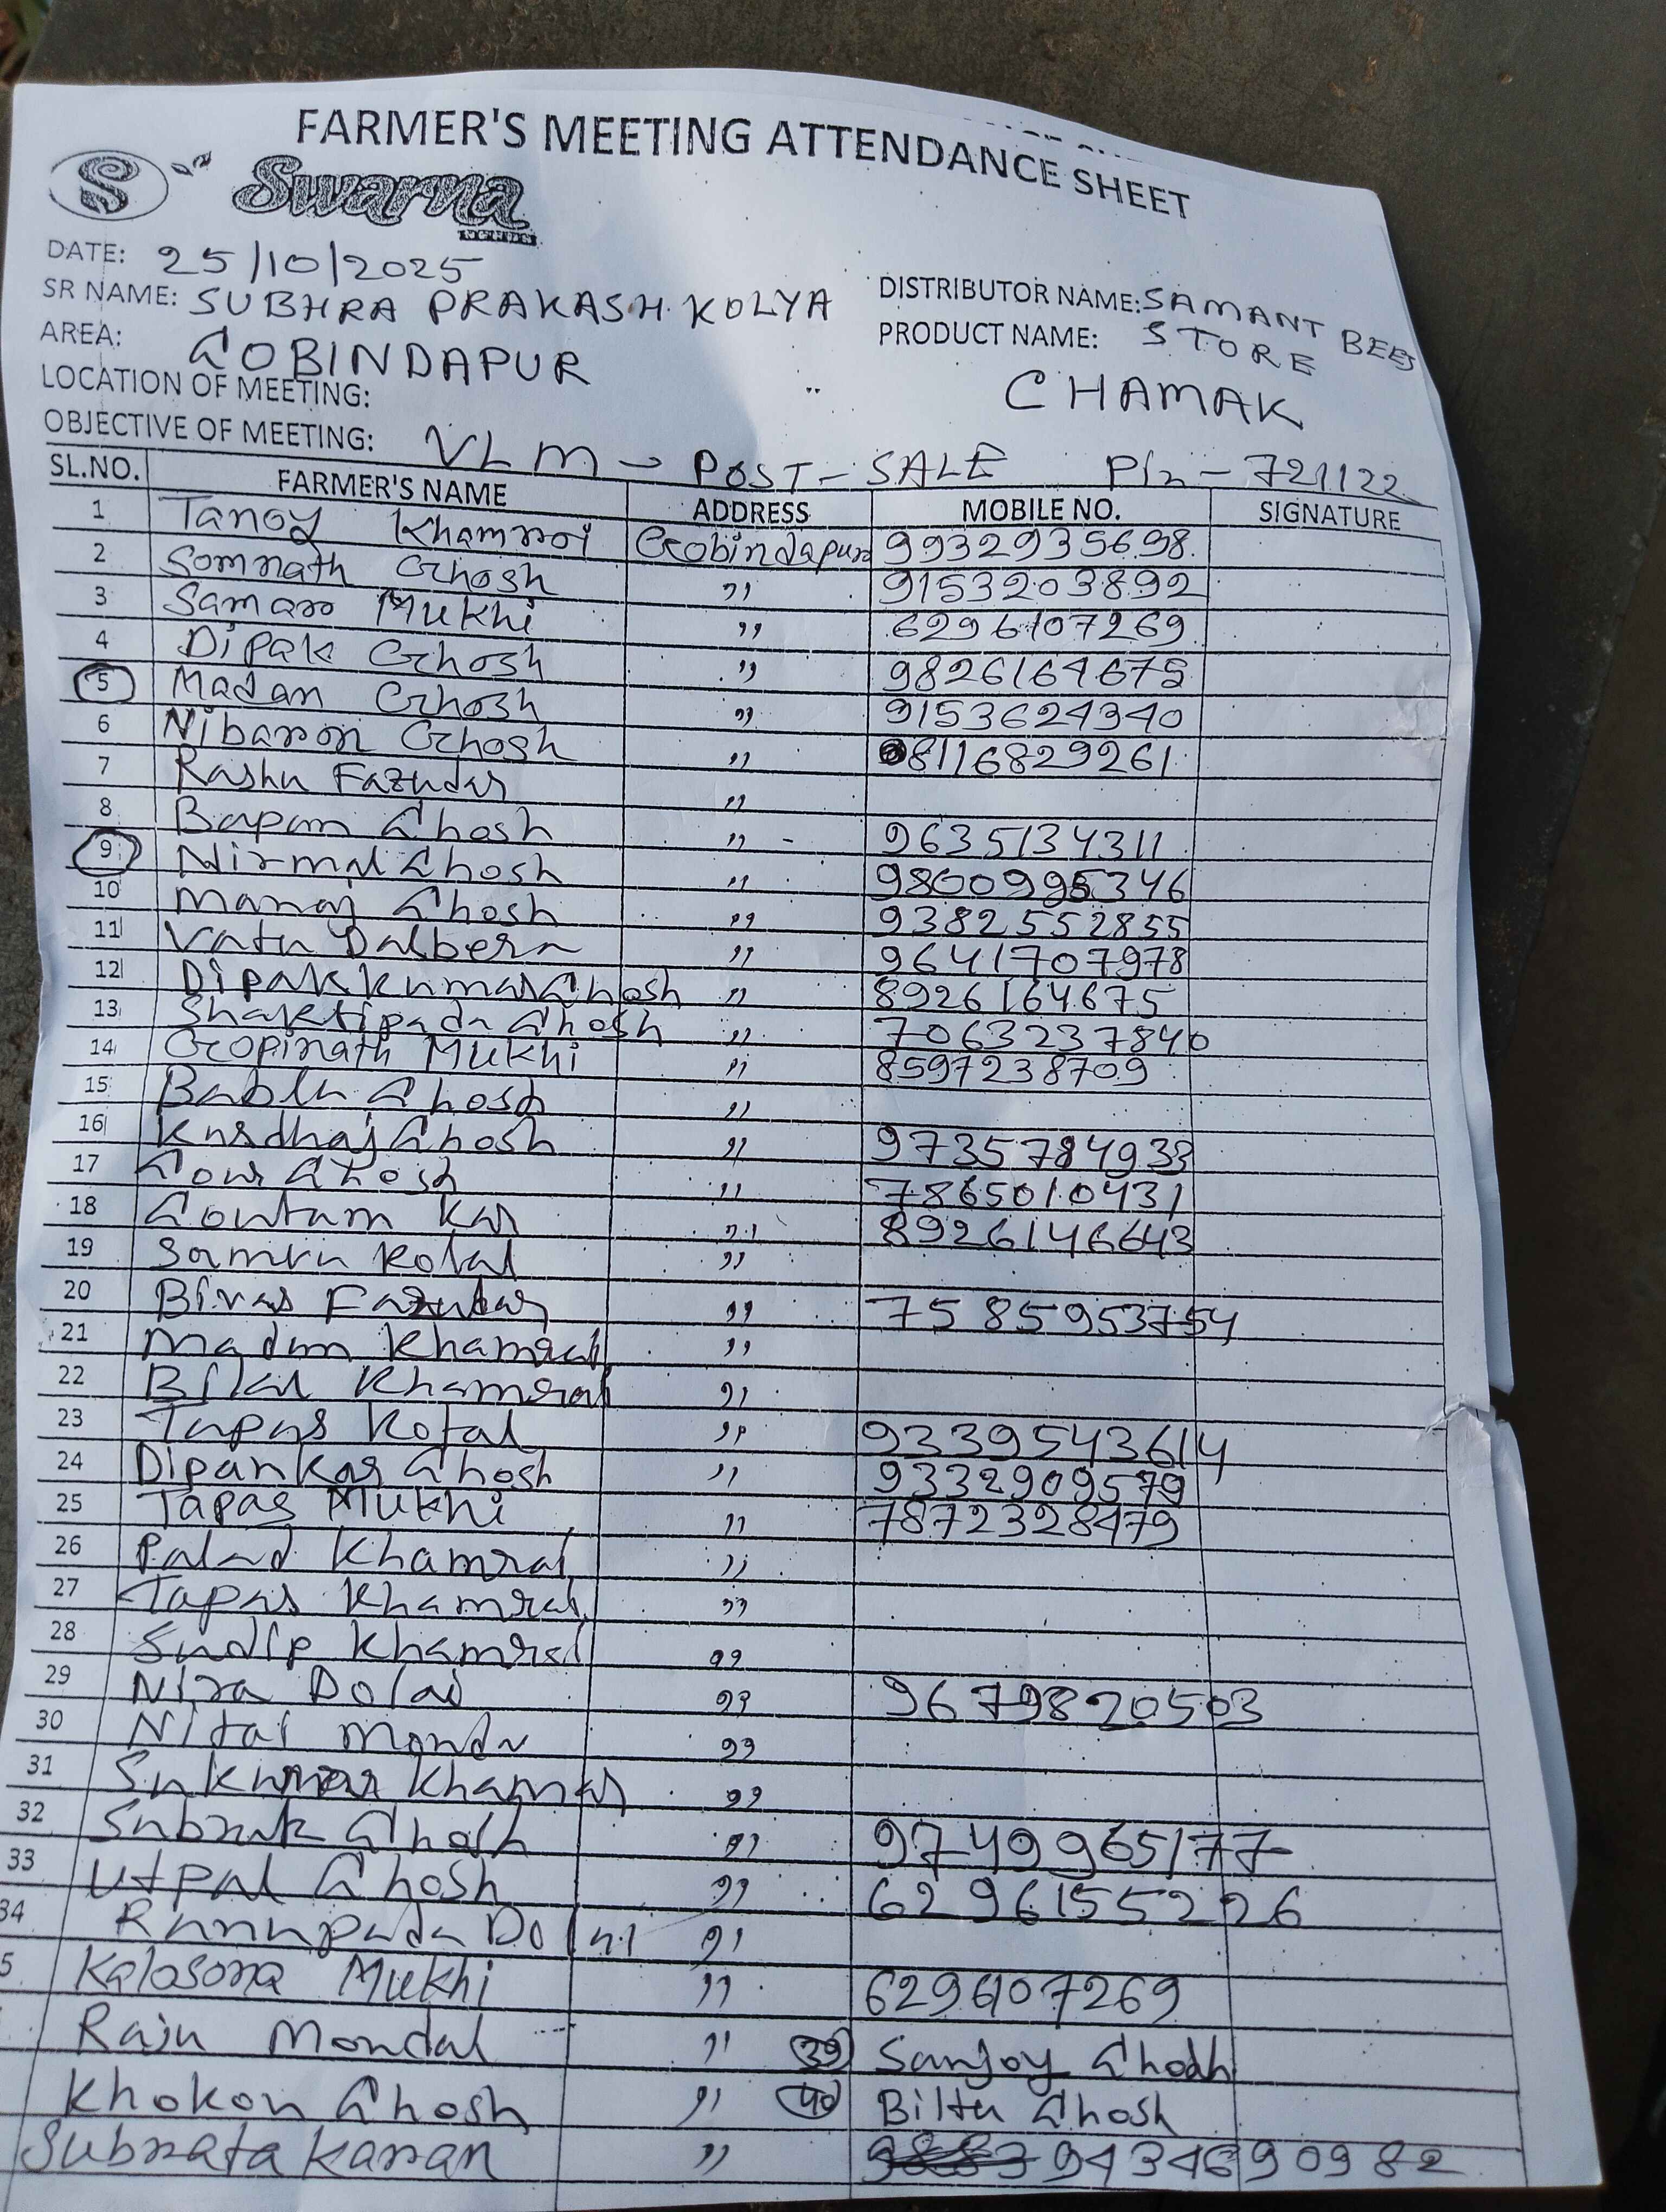 FARMER'S MEETING ATTENDANCE SHEET
S Swarna
DATE: 25/10/2025
SR NAME: SUBHRA PRAKASH KOLYA DISTRIBUTOR NAME: SAMANT BEEJ STORE
AREA: GOBINDAPUR PRODUCT NAME: CHAMAK
LOCATION OF MEETING:
OBJECTIVE OF MEETING: VLM → POST-SALE Pin-721122
SL.NO. FARMER'S NAME ADDRESS MOBILE NO. SIGNATURE
1 Tanoy Khamroi Gobindapur 9932935698
2 Somnath Ghosh ,, 9153203892
3 Samaro Mukhi ,, 6296107269
4 Dipak Ghosh ,, 9826164675
5 Madan Ghosh ,, 9153624340
6 Nibaron Ghosh ,, 8116829261
7 Rashu Fazudar ,,
8 Bapan Ghosh ,, 9635134311
9 Nirmal Ghosh ,, 9800995346
10 Manoj Ghosh ,, 9382552855
11 Vatu Dalbera ,, 9641707978
12 Dipak kumar Ghosh ,, 8926164675
13 Shaktipada Ghosh ,, 7063237840
14 Gopinath Mukhi ,, 8597238709
15 Bablu Ghosh ,,
16 Kurdhaj Ghosh ,, 9735784933
17 Gour Ghosh ,, 7865010431
18 Goutam Kar ,, 8926146643
19 Samru Kotal ,,
20 Bivas Fazudar ,, 7585953754
21 Madan Khamrai ,,
22 Bilas Khamrai ,,
23 Tapas Kotal ,, 9339543614
24 Dipankar Ghosh ,, 9332909579
25 Tapas Mukhi ,, 7872328479
26 Palad Khamrai ,,
27 Tapas Khamrai ,,
28 Sudip Khamrai ,,
29 Nira Dolai ,, 9679820503
30 Nitai Mondu ,,
31 Sukumar Khamar ,,
32 Subrat Ghosh ,, 9749965177
33 Utpal Ghosh ,, 6296155226
34 Ramapada Dolai ,,
5 Kalosona Mukhi ,, 6296107269
Raju Mondal ,, 39 Sanjoy Ghodh
Khokon Ghosh ,, 40 Biltu Ghosh
Subrata Karan ,, 9434690982